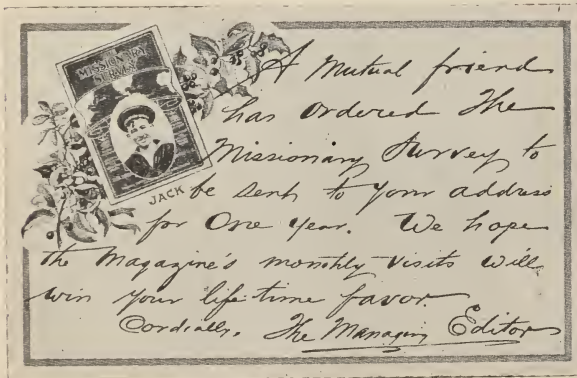 THE
MISSIONARY
SURVEY
JACK
A Mutual friend
has ordered The
Missionary Survey to
be sent to your address
for One year. We hope
the Magazine's monthly visits will
win your life time favor
Cordially, The Managing Editor